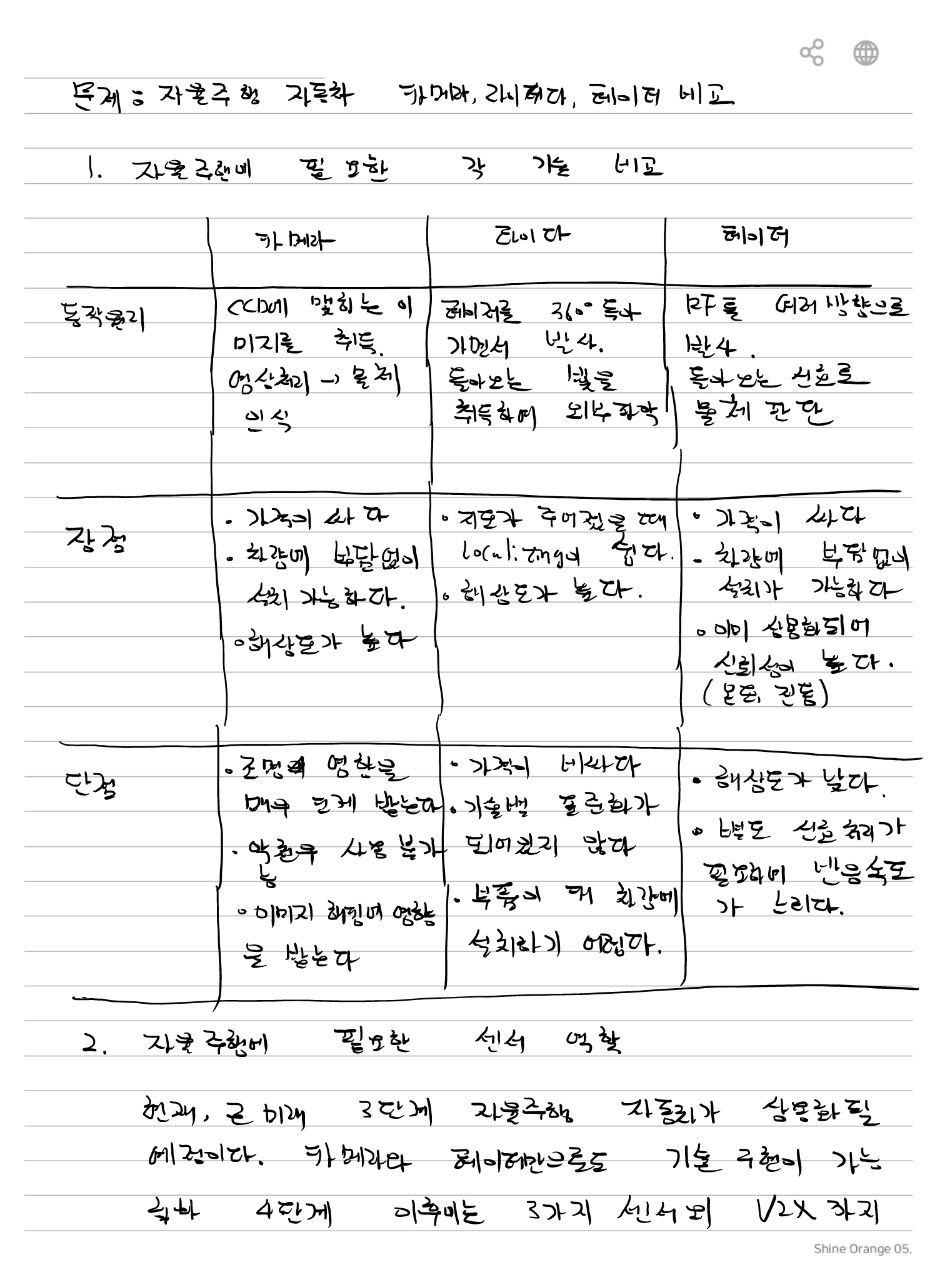 문제 : 자율주행 자동차 카메라, 라이다, 레이더 비교
1. 자율주행에 필요한 각 기술 비교
카메라 라이다 레이더
동작원리
CCD에 맺히는 이
미지를 취득.
영상처리 → 물체
인식
레이저를 360° 돌아
가면서 발사.
돌아오는 빛을
취득하여 외부파악
RF를 여러 방향으로
발사.
돌아오는 신호로
물체 판단
장점
· 가격이 싸다
· 차량에 부담없이
설치 가능하다.
· 해상도가 높다
· 지도가 주어졌을 때
localizing이 쉽다.
· 해상도가 높다.
· 가격이 싸다
· 차량에 부담없이
설치가 가능하다
· 이미 상용화되어
신뢰성이 높다.
(온도, 진동)
단점
· 조명의 영향을
매우 크게 받는다
· 악천후 사용 불가
능
· 이미지 해킹에 영향
을 받는다
· 가격이 비싸다
· 기술별 표준화가
되어있지 않다
· 부품이 커 차량에
설치하기 어렵다.
· 해상도가 낮다.
· 별도 신호처리가
필요하며 반응속도
가 느리다.
2. 자율주행에 필요한 센서 역할
현재, 근 미래 3단계 자율주행 자동차가 상용화될
예정이다. 카메라와 레이더만으로도 기술 구현이 가능
하나 4단계 이후에는 3가지 센서와 V2X 까지
Shine Orange 05.